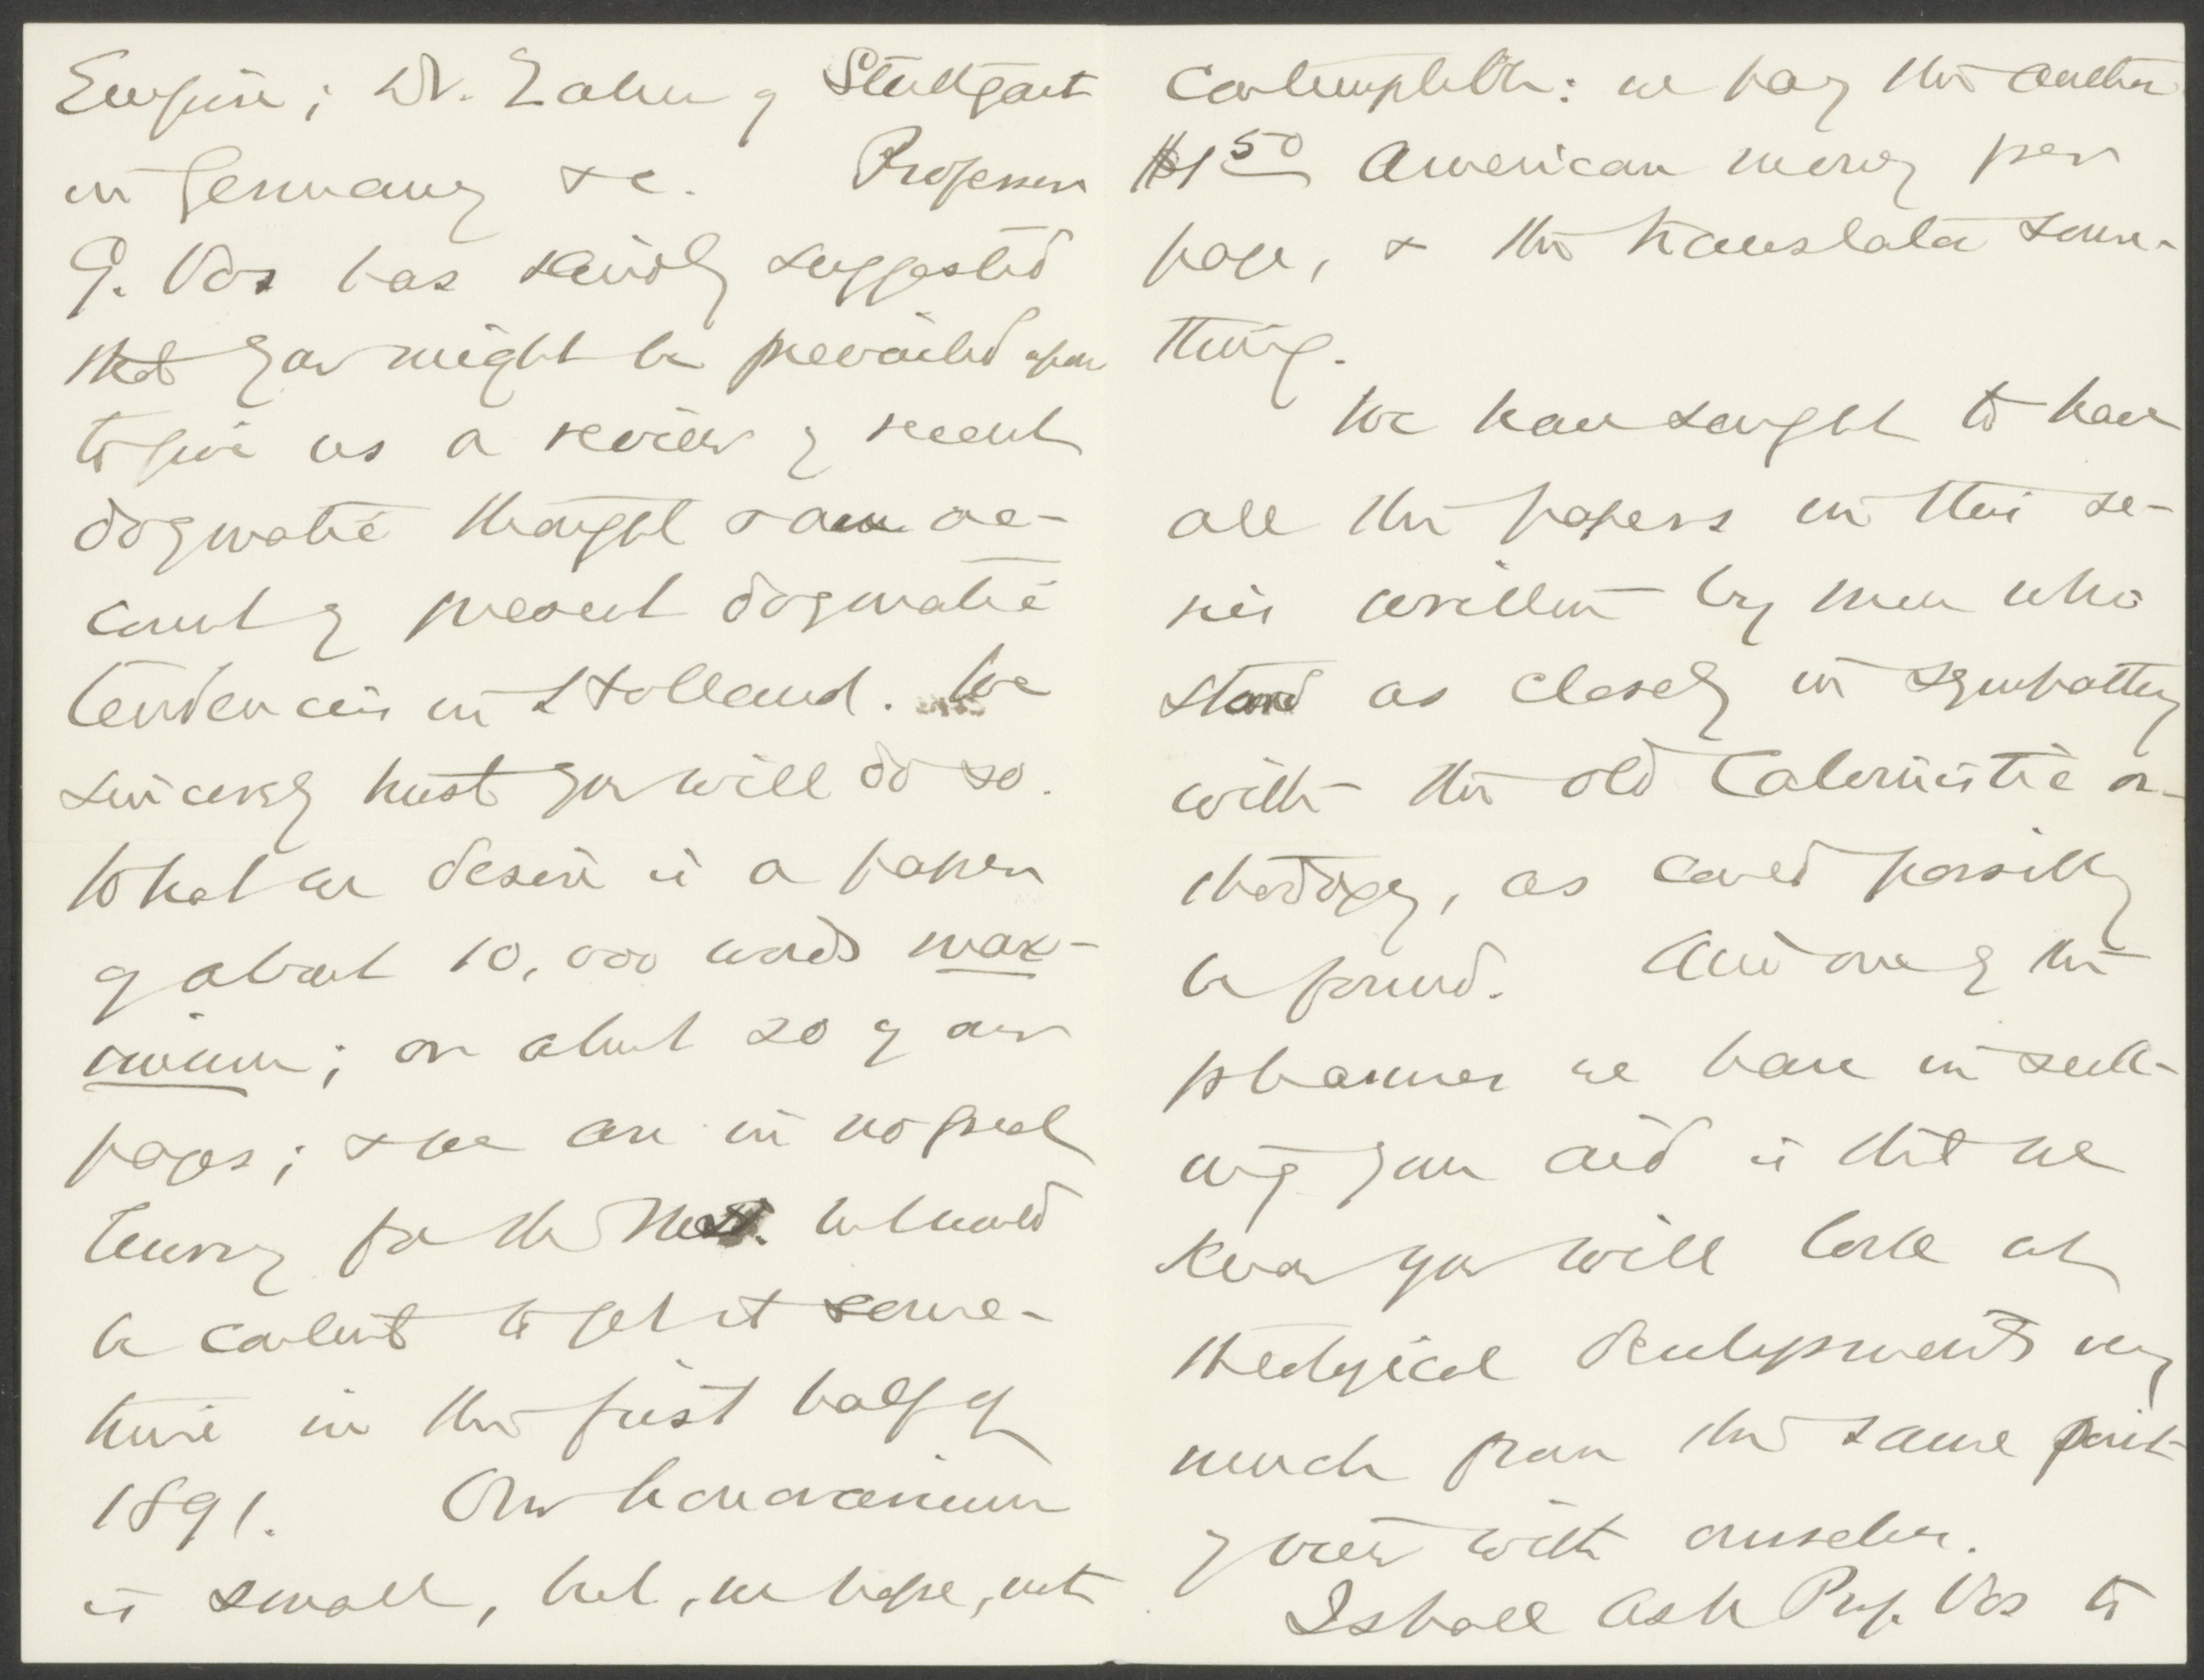 Empire; Dr. Zahn of Stuttgart
in Germany &c. Professor
G. Vos has kindly suggested
that you might be prevailed upon
to give us a review of recent
dogmatic thought & an ac-
count of present dogmatic
tendencies in Holland. We
sincerely trust you will do so.
What we desire is a paper
of about 10,000 words max-
imum; or about 20 of our
pages; & we are in no great
hurry for the MS. We should
be content to get it some-
time in the first half of
1891. Our honorarium
is small, but, we hope, not
contemptible: we pay the author
$1 50 American money per
page, & the translator some-
thing.
We have sought to have
all the papers in this se-
ries written by men who
stand as closely in sympathy
with the old Calvinistic or-
thodoxy, as could possibly
be found. And one of the
pleasures we have in seek-
ing your aid is that we
know you will look at
theological developments very
much from the same point
of view with ourselves.
I shall ask Prof. Vos to